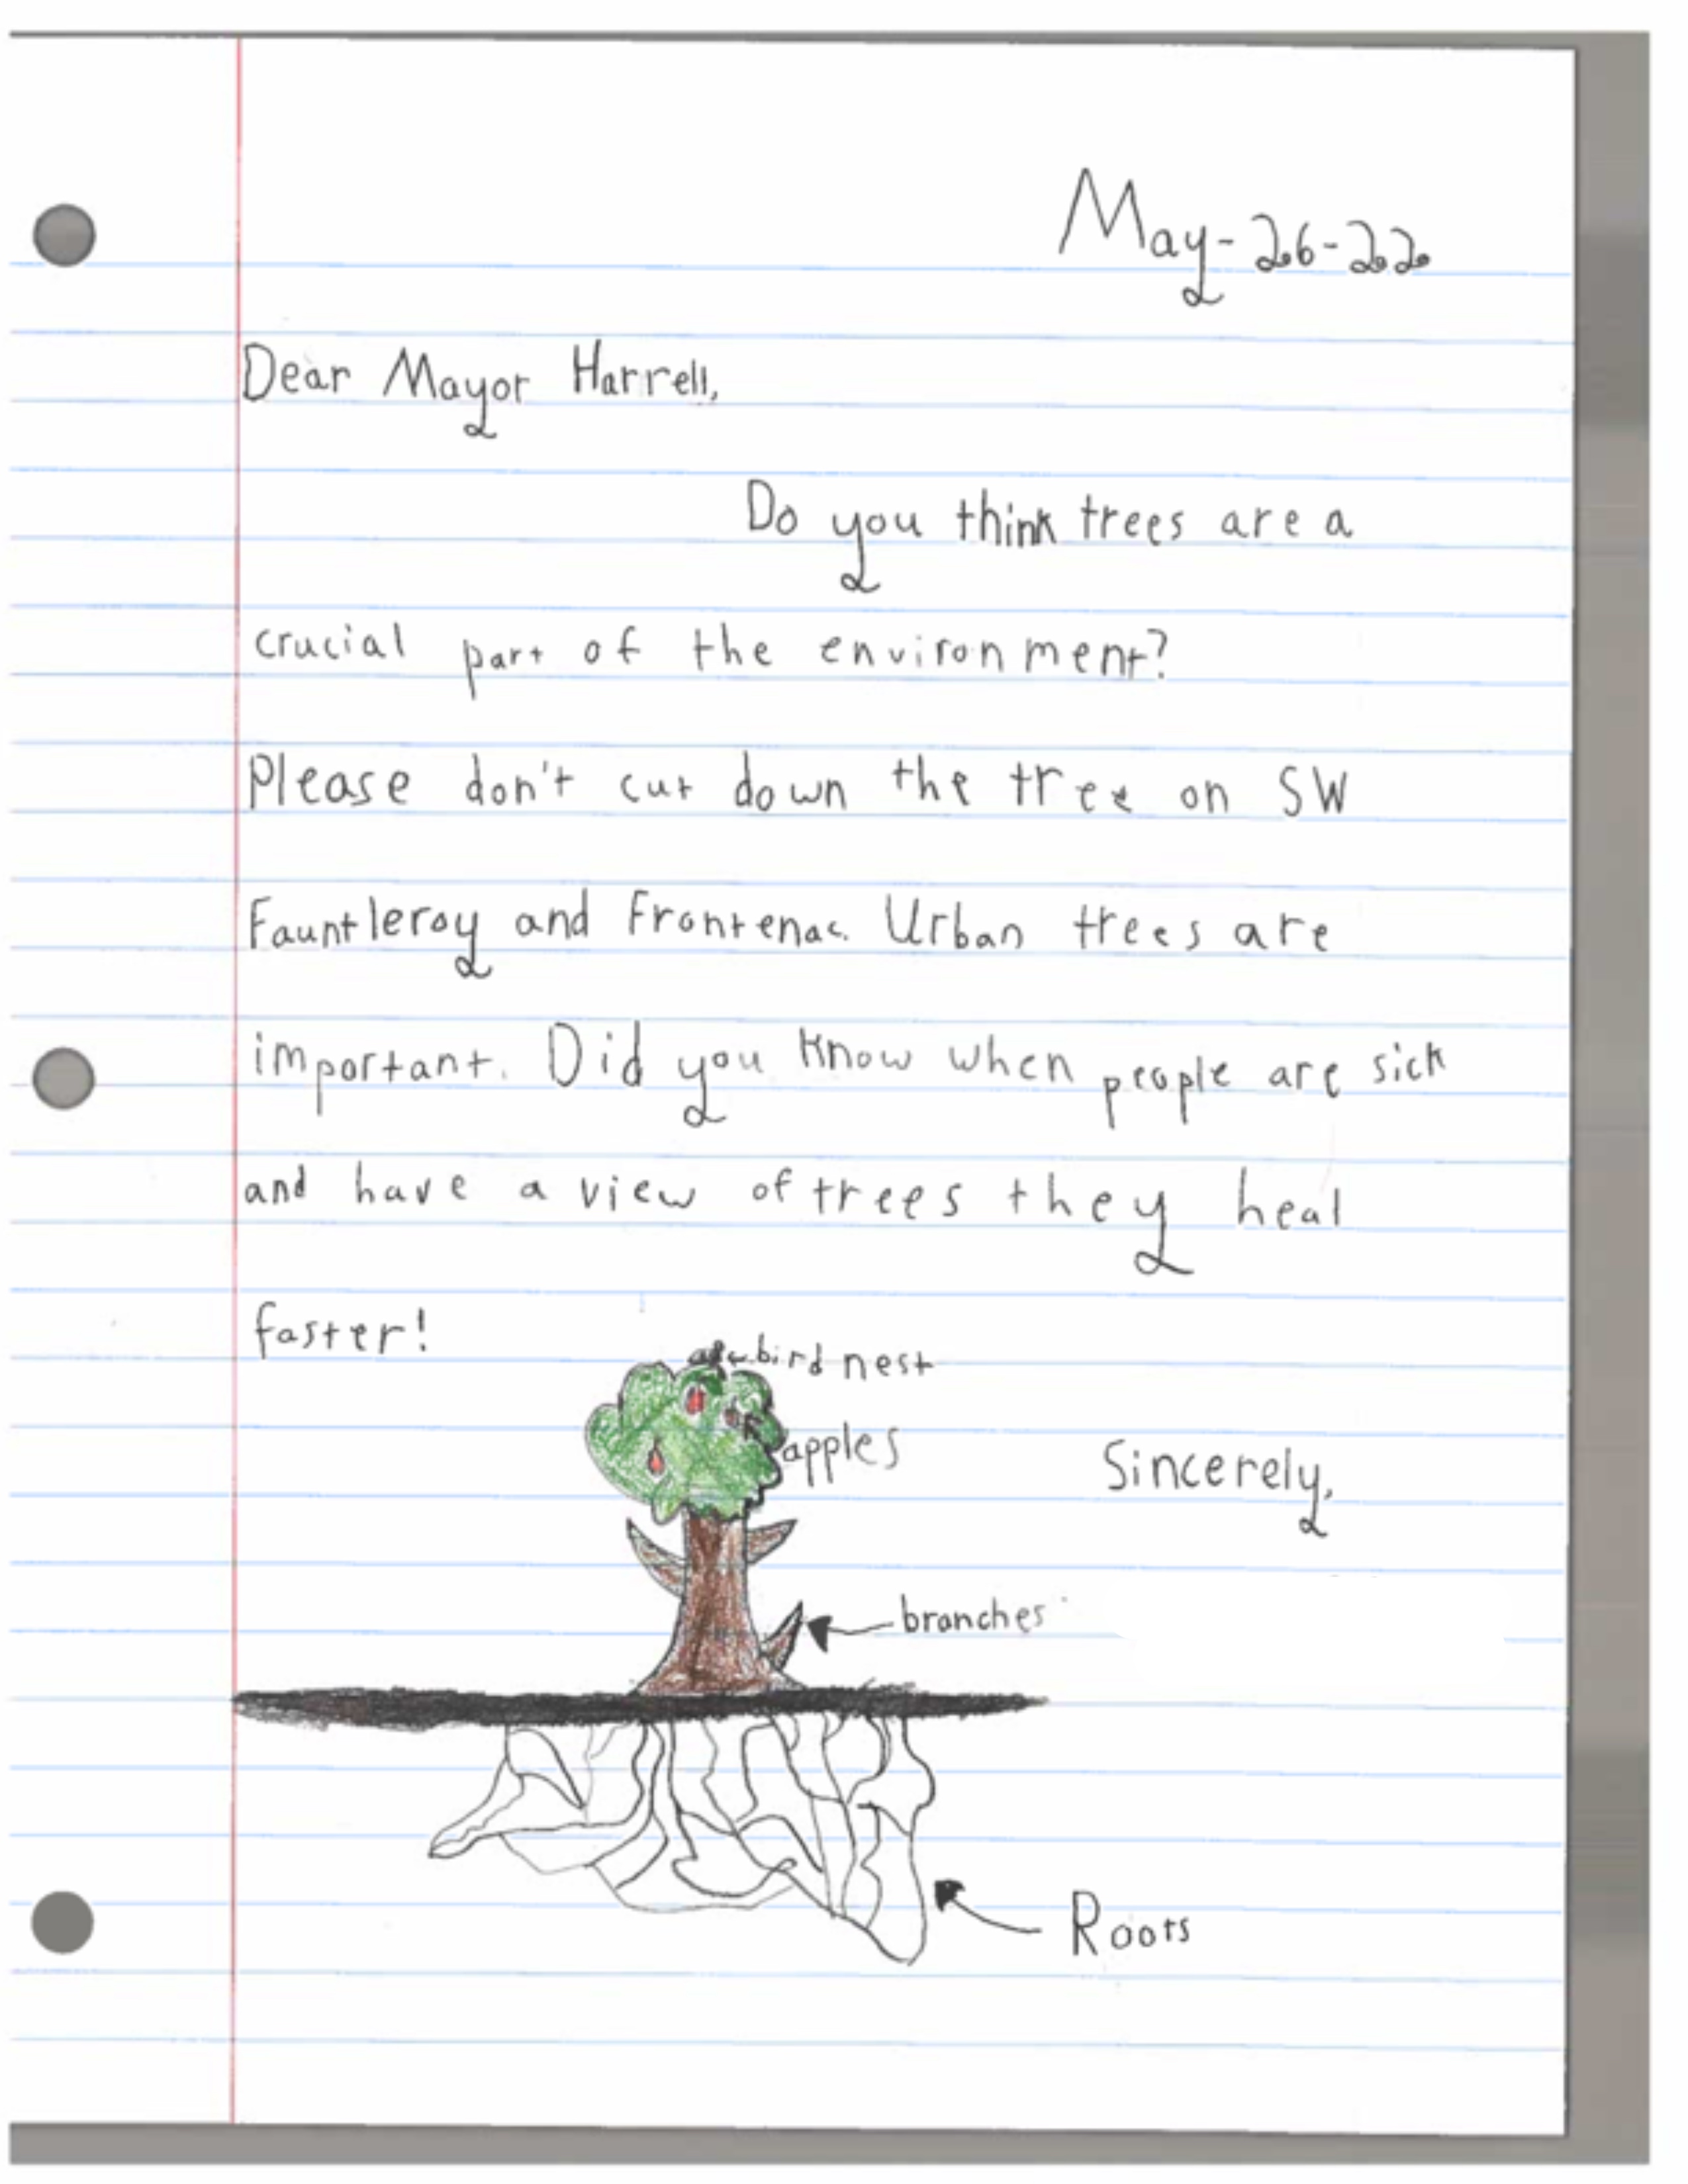 May-26-22
Dear Mayor Harrell,
Do you think trees are a
crucial part of the environment?
Please don't cut down the tree on SW
Fauntleroy and Frontenac. Urban trees are
important. Did you know when people are sick
and have a view of trees they heal
faster!
bird nest
apples
Sincerely,
branches
Roots